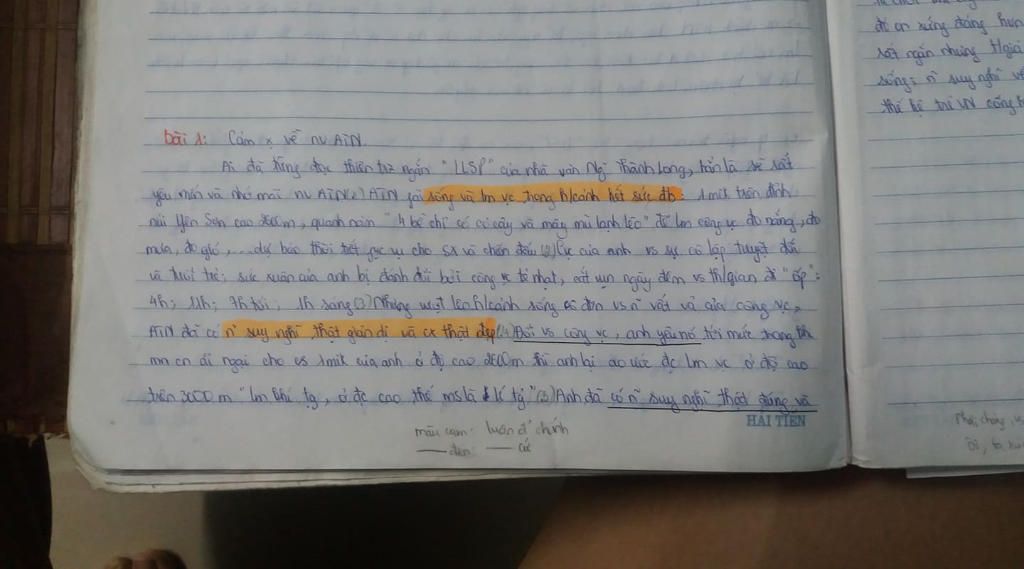 đc cn sống đáng hơn
rất ngắn nhưng
sống: n~ suy nghĩ về
thế hệ trẻ VN cống h
bài 1: Cảm x về nv ATN.
Ai đã từng đọc thiên tr ngắn "LLSP" của nhà văn Ng~ Thành Long, hẳn là sẽ rất
yêu mến và nhớ mãi nv ATN(1) ATN sống và lm vc trong h/cảnh hết sức đb 1 mik trên đỉnh
núi Yên Sơn cao 2600m, quanh năm "4 bề chỉ có cỏ cây và mây mù lạnh lẽo" để lm công vc đo nắng, đo
mưa, đo gió, ... dự báo thời tiết phục vụ cho sx và chiến đấu (2) của anh vs sự cô lập tuyệt đối
và tuổi trẻ; sức xuân của anh bị đánh đổi bởi công vc tẻ nhạt, vụn ngày đêm vs th/gian để "ốp":
4h; 11h; 7h tối; 1h sáng (3) Nhưng vượt lên h/cảnh sống cô đơn vs n~ vất vả của công vc,
ATN đã có n~ suy nghĩ thật giản dị và cx thật đẹp (4) Đối vs công vc, anh yêu nó tới mức trong khi
mn cn ái ngại cho cs 1 mik của anh ở độ cao 2600m thì anh lại ao ước đc lm vc ở độ cao
trên 3000m "lm khí tg, ở đc cao thế ms là lí tg" (5) Anh đã có n~ suy nghĩ thật đúng và
HẢI TIẾN
màu cam: luận đ' chính
đen: cứ
Phải chăng,